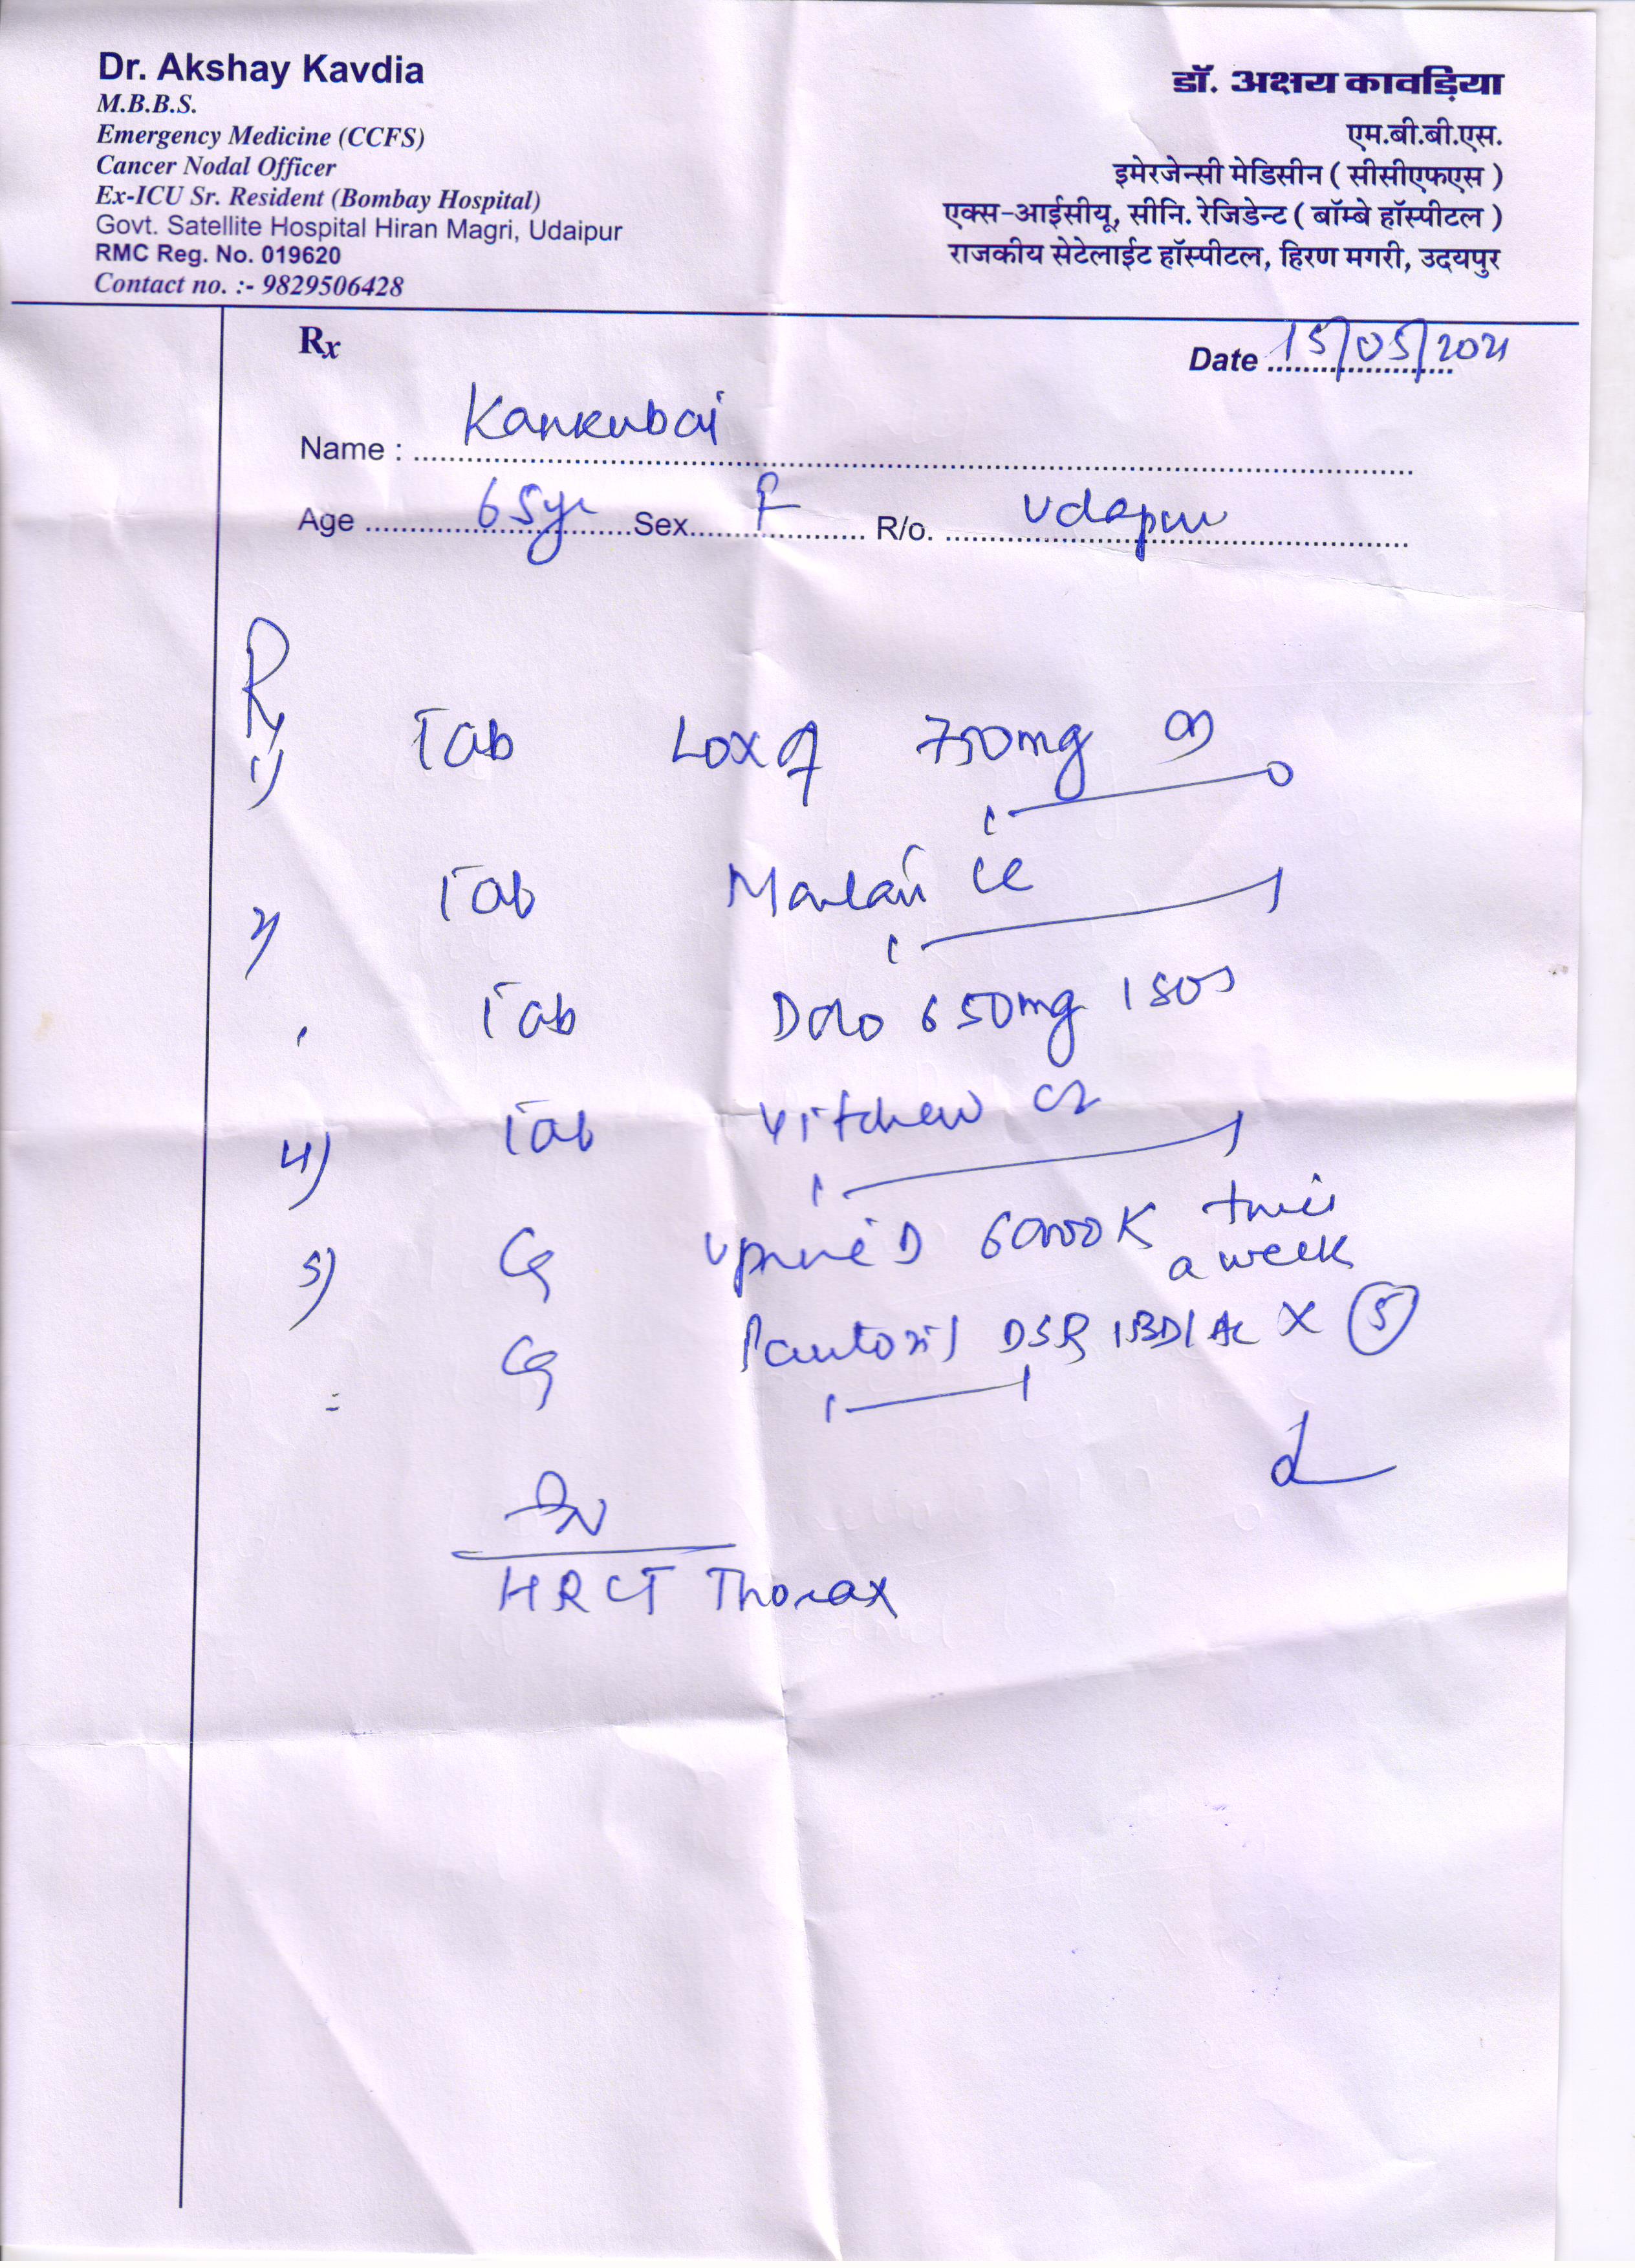 Dr. Akshay Kavdia
M.B.B.S.
Emergency Medicine (CCFS)
Cancer Nodal Officer
Ex-ICU Sr. Resident (Bombay Hospital)
Govt. Satellite Hospital Hiran Magri, Udaipur
RMC Reg. No. 019620
Contact no. :- 9829506428
डॉ. अक्षय कावड़िया
एम.बी.बी.एस.
इमेरजेन्सी मेडिसीन ( सीसीएफएस )
एक्स-आईसीयू, सीनि. रेजिडेन्ट ( बॉम्बे हॉस्पीटल )
राजकीय सेटेलाईट हॉस्पीटल, हिरण मगरी, उदयपुर
Rx
Date 15/05/2021
Name : Kankubai
Age 65yr Sex F R/o. Udaipur
Rx
1) Tab 750mg
2) Tab
Tab Dolo 650mg 1 SOS
4) Tab
5) D 60000K twice
a week
DSR 1BD/AC X 5
HRCT Thorax